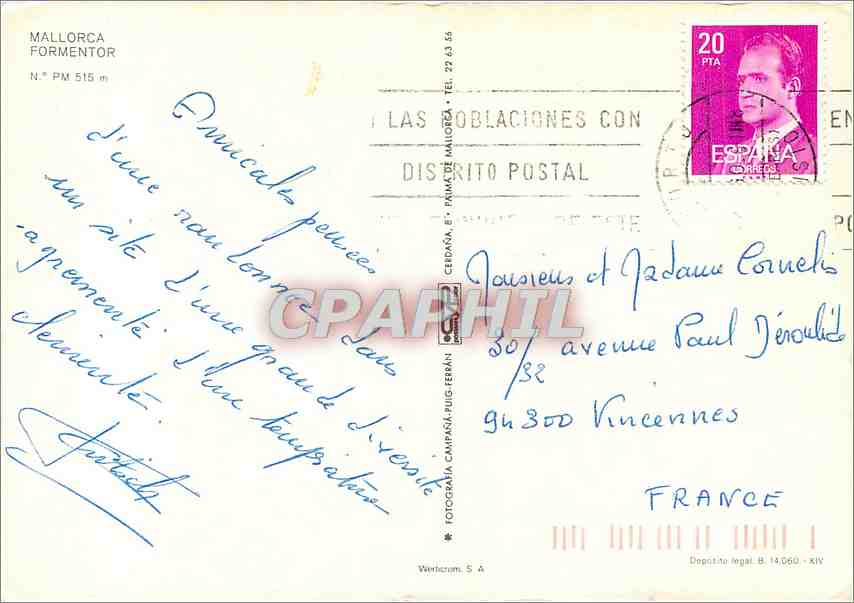 MALLORCA
FORMENTOR
N.º PM 515 m
Amicales pensées
d'une randonnée dans
un site d'une grande diversité
agrémenté d'une température
clémente.
FOTOGRAFÍA CAMPAÑÁ-PUIG-FERRÁN
CERDAÑA, 8 • PALMA DE MALLORCA • TEL. 22 63 56
20
PTA
ESPAÑA
CORREOS
LAS POBLACIONES CON
EN
DISTRITO POSTAL
PO
Monsieur et Madame Cornelis
30/32 avenue Paul Déroulède
94300 Vincennes
FRANCE
CPAPHIL
Werticrom, S. A
Depósito legal: B. 14.060.-XIV